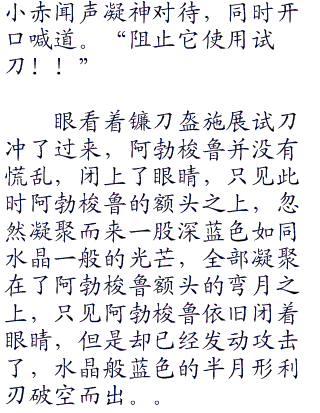 小赤闻声凝神对待，同时开
口喊道。“阻止它使用试
刀！！”
眼看着镰刀盔施展试刀
冲了过来，阿勃梭鲁并没有
慌乱，闭上了眼睛，只见此
时阿勃梭鲁的额头之上，忽
然凝聚而来一股深蓝色如同
水晶一般的光芒，全部凝聚
在了阿勃梭鲁额头的弯月之
上，只见阿勃梭鲁依旧闭着
眼睛，但是却已经发动攻击
了，水晶般蓝色的半月形利
刃破空而出。。